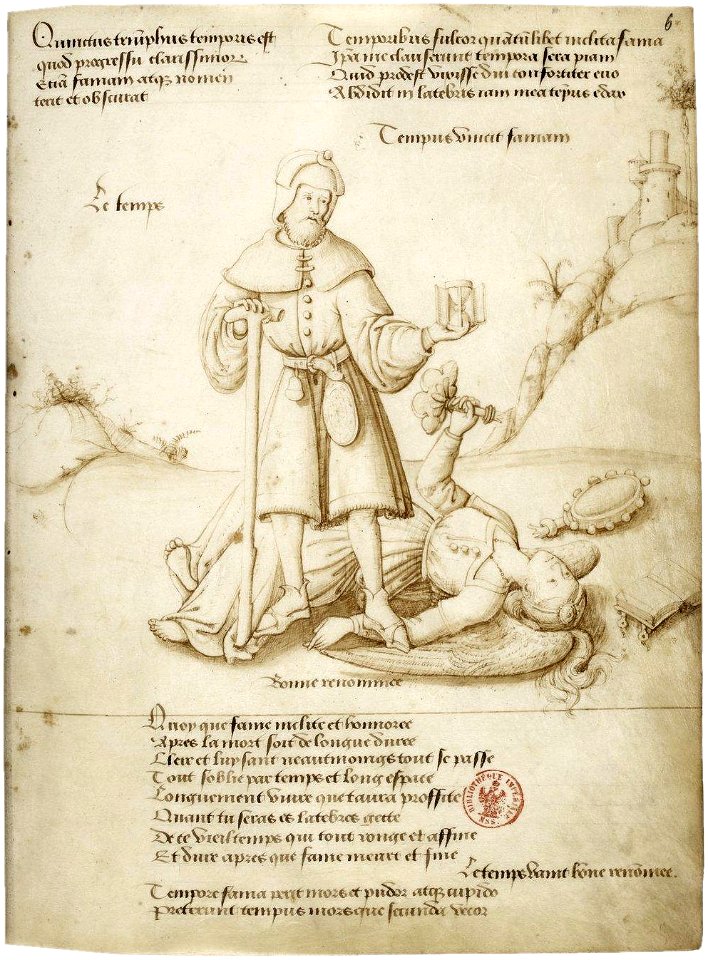 6
Quintus triumphus temporis est
quod progressu clarissimor
Etiā famam atq nomen
terit et obscurat
Temporibus fulcor quātūlibet inclita fama
Ipā me clauserunt tempora sera piam
Quid prodest vixisse diu cou fortiter euo
Abdidit in latebris iam mea tēpus edax
Tempus vincit famam
Le temps
Bonne renommee
Quoy que fame inclite et honnoree
Apres la mort soit de longue duree
Clere et luysant neautmoings tout se passe
Tout soblie par temps et long espace
Longuement viure que taura proffite
Quant tu seras es latebres gette
De ce vieil temps qui tout ronge et affine
Et dure apres que fame meurt et fine
Le temps vaint bōne renōmee.
Tempore fama perit mors et pudor atq cupido
Pretereunt tempus morsque secunda vocor
BIBLIOTHÈQUE IMPÉRIALE MSS.